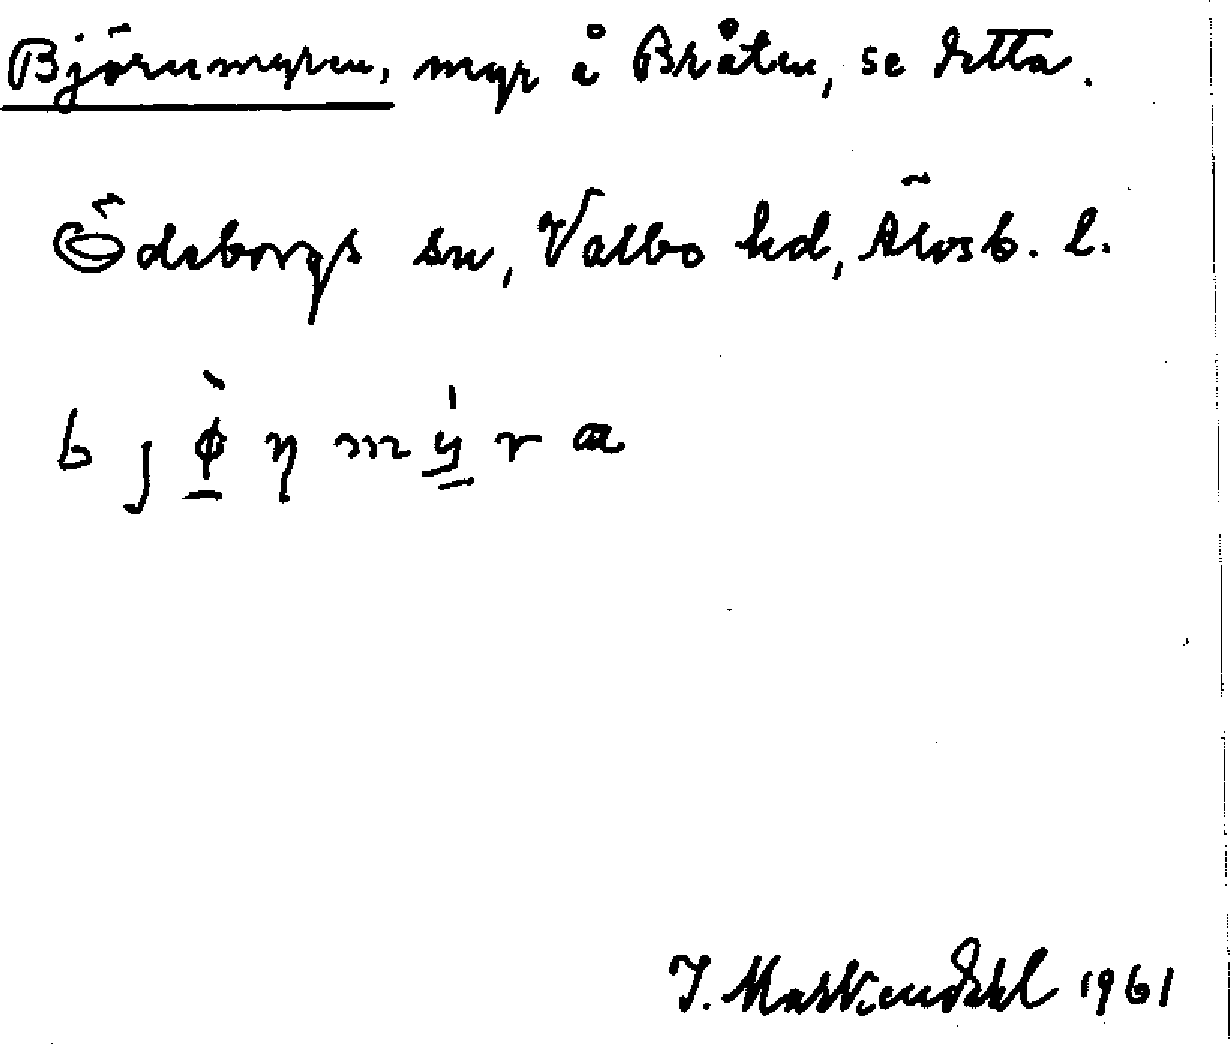 Björnmyren, myr å Bråten, se detta.
Ödeborgs sn, Valbo hd, Älvsb. l.
b j ø̀ ŋ m ý r æ
J. 1961